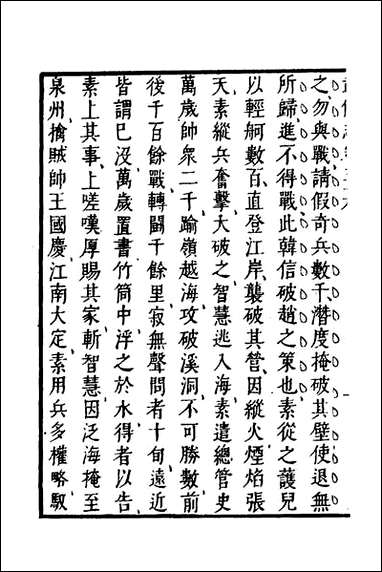 之勿與戰請假奇兵數千潛度掩破其壁使退無
所歸進不得戰此韓信破趙之策也素從之護兒
以輕舸數百直登江岸襲破其營因縱火煙焰張
天素縱兵奮擊大破之智慧逃入海素遣總管史
萬歲帥衆二千踰嶺越海攻破溪洞不可勝數前
後千百餘戰轉鬬千餘里寂無聲問者十旬遠近
皆謂已没萬歲置書竹筒中浮之於水得者以告
素上其事上嗟嘆厚賜其家斬智慧因泛海掩至
泉州擒賊帥王國慶江南大定素用兵多權略馭